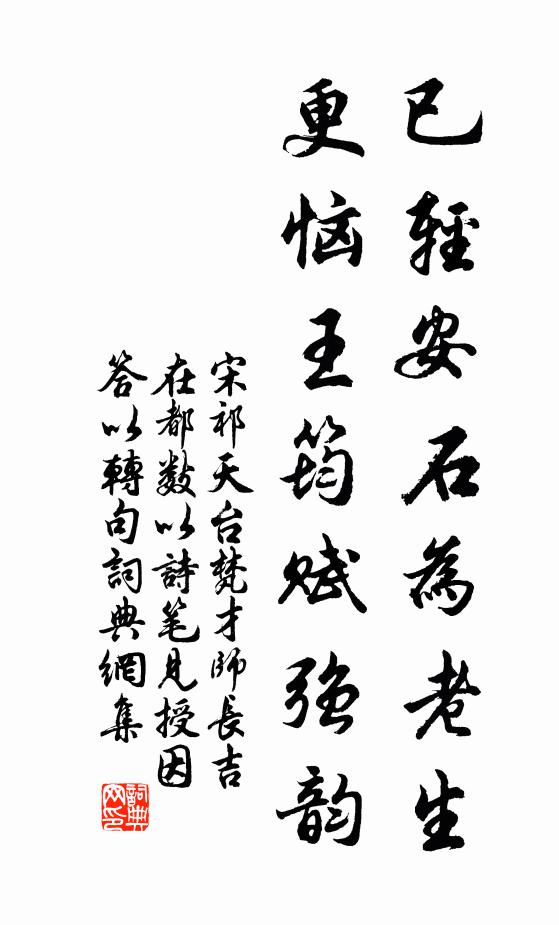 已輕安石為老生
更恼王筠赋强韵
宋祁天台梵才師長吉
在都数以詩笔見授因
答以轉句詞典網集
詞典网印